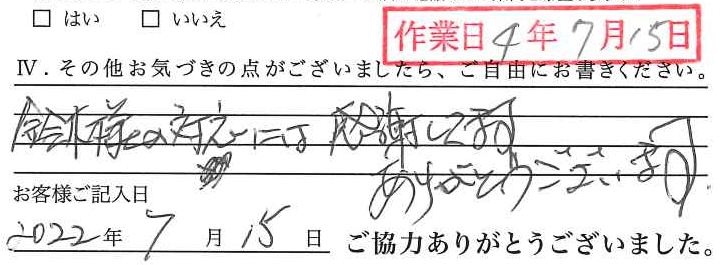 □ はい □ いいえ
作業日 4年7月15日
Ⅳ．その他お気づきの点がございましたら、ご自由にお書きください。
鈴木様の対応には感謝してます
ありがとうございます
お客様ご記入日
2022年 7月 15日 ご協力ありがとうございました。